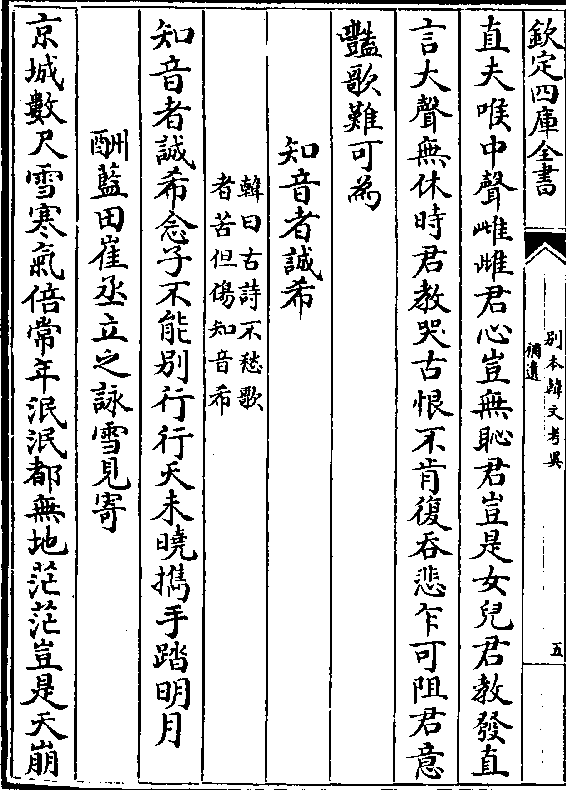 欽定四庫全書
別本韓文考異
補遺
五
直夫喉中聲雌雌君心豈無恥君豈是女兒君教發直
言大聲無休時君教哭古恨不肯復吞悲乍可阻君意
豔歌難可為
知音者誠希
韓曰古詩不愁歌
者苦但傷知音希
知音者誠希念子不能别行行天未曉攜手踏明月
酬藍田崔丞立之詠雪見寄
京城數尺雪寒氣倍常年泯泯都無地茫茫豈是天崩